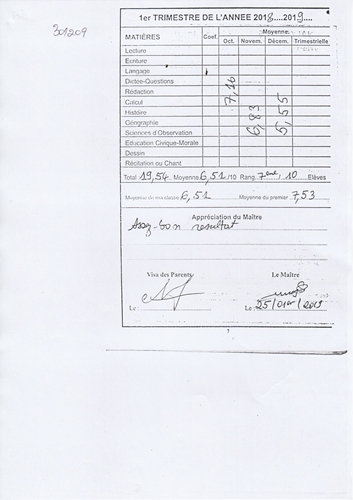 301209
1er TRIMESTRE DE L'ANNEE 2018....2019....
MATIÈRES Coef. Moyenne
Oct. Novem. Décem. Trimestrielle
Lecture
Ecriture
Langage
Dictée-Questions
Rédaction
Calcul
Histoire
Géographie
Sciences d'Observation
Education Civique-Morale
Dessin
Récitation ou Chant
7,16 6,83 5,55
Total 19,54 Moyenne 6,51 /10 Rang 7 eme / 10 Elèves
Moyenne de ma classe 6,51 Moyenne du premier 7,53
Appréciation du Maître
Assez-bon resultat
Visa des Parents Le Maître
Le : Le : 25/01/2019
7